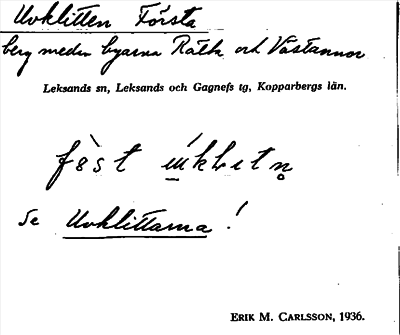 Uvklitten Första
berg mellan byarna Rältа och Västannor
Leksands sn, Leksands och Gagnefs tg, Kopparbergs län.
se Uvklittarna!
ERIK M. CARLSSON, 1936.